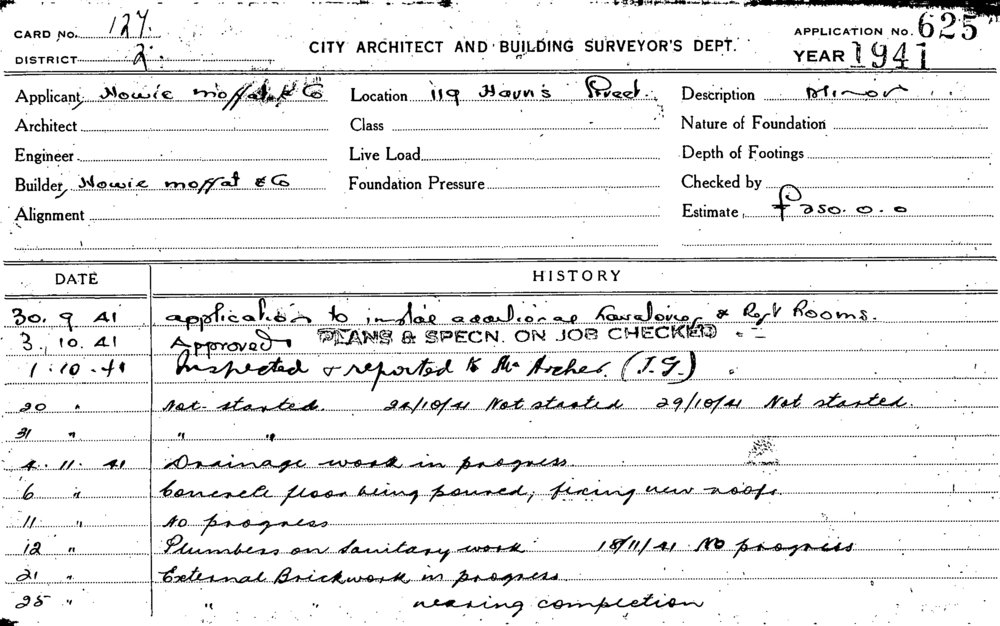 CARD No. 127.
DISTRICT 2.
CITY ARCHITECT AND BUILDING SURVEYOR'S DEPT.
APPLICATION No. 625
YEAR 1941
Applicant, Howie moffat & Co Location 119 Street. Description Minor
Architect Class Nature of Foundation
Engineer Live Load Depth of Footings
Builder, Howie moffat & Co Foundation Pressure Checked by
Alignment Estimate, £250.0.0
DATE HISTORY
30. 9 41 application to additional & Rooms.
3. 10. 41 Approved PLANS & SPECN. ON JOB CHECKED
1. 10. 41 Inspected & reported to Mr Archer. (J.G.)
20 " Not started. 24/10/41 Not started 29/10/41 Not started.
31 " " "
4. 11. 41 Drainage work in progress.
6 " Concrete floor being poured; fixing new roofs.
11 " No progress
12 " Plumbers on Sanitary work 18/11/41 No progress
21 " External Brickwork in progress.
25 " " " nearing completion